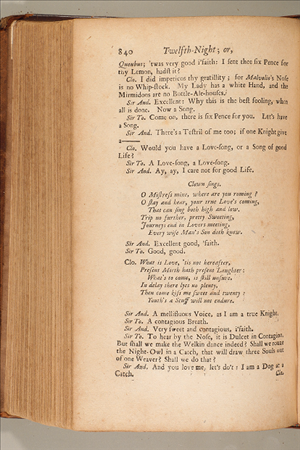 840 Twelfth-Night; or,
Queubus; 'twas very good i'faith: I sent thee six Pence for
my Lemon, hadst it?
Clo. I did impeticos thy gratillity; for Malvolio's Nose
is no Whip-stock. My Lady has a white Hand, and the
Mirmidons are no Bottle-Ale-houses.
Sir And. Excellent: Why this is the best fooling, when
all is done. Now a Song.
Sir To. Come on, there is six Pence for you. Let's have
a Song.
Sir And. There's a Testril of me too; if one Knight give
a
Clo. Would you have a Love-song, or a Song of good
Life?
Sir To. A Love-song, a Love-song.
Sir And. Ay, ay, I care not for good Life.
Clown sings.
O Mistress mine, where are you roaming?
O stay and hear, your true Love's coming,
That can sing both high and low.
Trip no further, pretty Sweeting,
Journeys end in Lovers meeting,
Every wise Man's Son doth know.
Sir And. Excellent good, 'faith.
Sir To. Good, good.
Clo. What is Love, 'tis not hereafter,
Present Mirth hath present Laughter:
What's to come, is still unsure.
In delay there lyes no plenty,
Then come kiss me sweet and twenty:
Youth's a Stuff will not endure.
Sir And. A mellifluous Voice, as I am a true Knight.
Sir To. A contagious Breath.
Sir And. Very sweet and contagious, i'faith.
Sir To. To hear by the Nose, it is Dulcet in Contagion.
But shall we make the Welkin dance indeed? Shall we rouze
the Night-Owl in a Catch, that will draw three Souls out
of one Weaver? Shall we do that?
Sir And. And you love me, let's do't: I am a Dog at a
Catch. Clo.